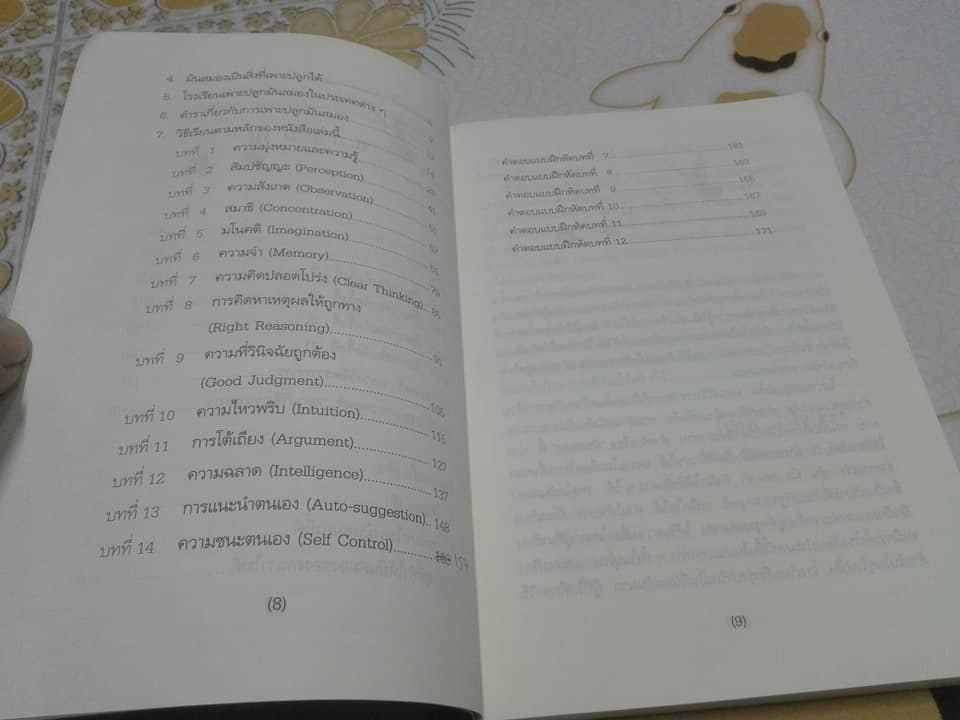 4. มันสมองเป็นสิ่งที่เพาะปลูกได้
5. โรงเรียนเพาะปลูกมันสมองในประเทศต่าง ๆ
6. ตำราเกี่ยวกับการเพาะปลูกมันสมอง
7. วิธีเรียนตามหลักของหนังสือเล่มนี้
บทที่ 1 ความมุ่งหมายและความรู้
บทที่ 2 สัมปชัญญะ (Perception)
บทที่ 3 ความสังเกต (Observation)
บทที่ 4 สมาธิ (Concentration)
บทที่ 5 มโนคติ (Imagination)
บทที่ 6 ความจำ (Memory)
บทที่ 7 ความคิดปลอดโปร่ง (Clear Thinking)
บทที่ 8 การคิดหาเหตุผลให้ถูกทาง
(Right Reasoning)
บทที่ 9 ความที่วินิจฉัยถูกต้อง
(Good Judgment) 105
บทที่ 10 ความไหวพริบ (Intuition) 115
บทที่ 11 การโต้เถียง (Argument) 127
บทที่ 12 ความฉลาด (Intelligence) 137
บทที่ 13 การแนะนำตนเอง (Auto-suggestion) 148
บทที่ 14 ความชนะตนเอง (Self Control) 157
(8)
คำตอบแบบฝึกหัดบทที่ 7 161
คำตอบแบบฝึกหัดบทที่ 8 163
คำตอบแบบฝึกหัดบทที่ 9 165
คำตอบแบบฝึกหัดบทที่ 10 167
คำตอบแบบฝึกหัดบทที่ 11 169
คำตอบแบบฝึกหัดบทที่ 12 171
(9)